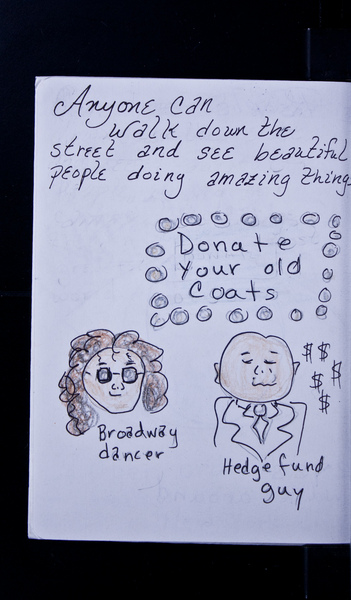 Anyone can
walk down the
street and see beautiful
people doing amazing things
Donate
your old
Coats
$ $
$ $
$
Broadway
dancer
Hedge fund
guy